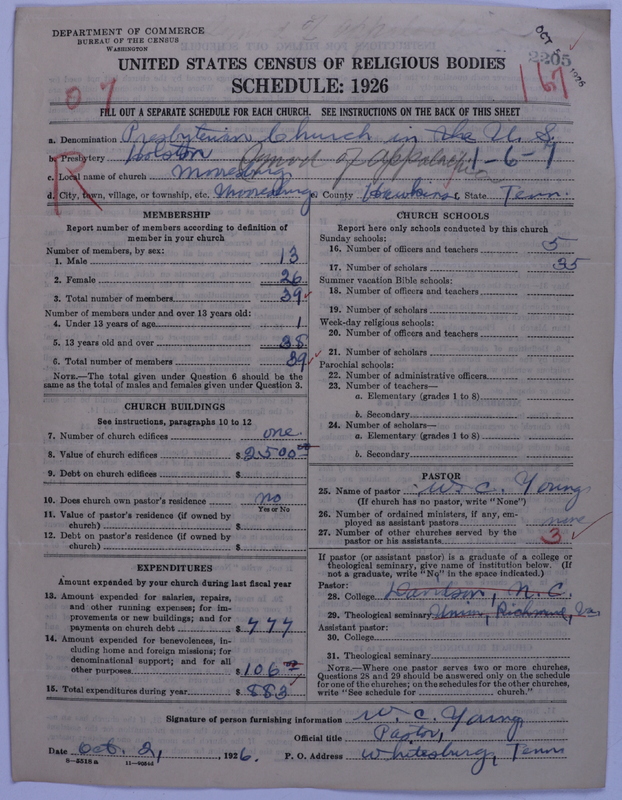 DEPARTMENT OF COMMERCE
BUREAU OF THE CENSUS
WASHINGTON
OCT 5 1926
2205
167
UNITED STATES CENSUS OF RELIGIOUS BODIES
SCHEDULE: 1926
07
FILL OUT A SEPARATE SCHEDULE FOR EACH CHURCH. SEE INSTRUCTIONS ON THE BACK OF THIS SHEET
a. Denomination Presbyterian Church in the U. S.
b. Presbytery Holston Synod of Appalachia 1-6-7
R
c. Local name of church Mooresburg
d. City, town, village, or township, etc. Mooresburg County Hawkins State Tenn.
MEMBERSHIP
Report number of members according to definition of
member in your church
Number of members, by sex:
1. Male 13
2. Female 26
3. Total number of members 39
Number of members under and over 13 years old:
4. Under 13 years of age 1
5. 13 years old and over 38
6. Total number of members 39
NOTE.—The total given under Question 6 should be the
same as the total of males and females given under Question 3.
CHURCH BUILDINGS
See instructions, paragraphs 10 to 12
7. Number of church edifices one
8. Value of church edifices $2500.00
9. Debt on church edifices $
10. Does church own pastor's residence no
Yes or No
11. Value of pastor's residence (if owned by
church) $
12. Debt on pastor's residence (if owned by
church) $
EXPENDITURES
Amount expended by your church during last fiscal year
13. Amount expended for salaries, repairs,
and other running expenses; for im-
provements or new buildings; and for
payments on church debt $777
14. Amount expended for benevolences, in-
cluding home and foreign missions; for
denominational support; and for all
other purposes $106
15. Total expenditures during year $883
CHURCH SCHOOLS
Report here only schools conducted by this church
Sunday schools:
16. Number of officers and teachers 5
17. Number of scholars 35
Summer vacation Bible schools:
18. Number of officers and teachers
19. Number of scholars
Week-day religious schools:
20. Number of officers and teachers
21. Number of scholars
Parochial schools:
22. Number of administrative officers
23. Number of teachers—
a. Elementary (grades 1 to 8)
b. Secondary
24. Number of scholars—
a. Elementary (grades 1 to 8)
b. Secondary
PASTOR
25. Name of pastor W. C. Young
(If church has no pastor, write "None")
26. Number of ordained ministers, if any, em-
ployed as assistant pastors none
27. Number of other churches served by the
pastor or his assistants 3
If pastor (or assistant pastor) is a graduate of a college or
theological seminary, give name of institution below. (If
not a graduate, write "No" in the space indicated.)
Pastor:
28. College Davidson, N. C.
29. Theological seminary Union, Richmond, Va.
Assistant pastor:
30. College
31. Theological seminary
NOTE.—Where one pastor serves two or more churches,
Questions 28 and 29 should be answered only on the schedule
for one of the churches; on the schedules for the other churches,
write "See schedule for church."
Signature of person furnishing information W. C. Young
Official title Pastor,
Date Oct. 2, 1926. P. O. Address Whitesburg, Tenn
8—5518a 11—9054d